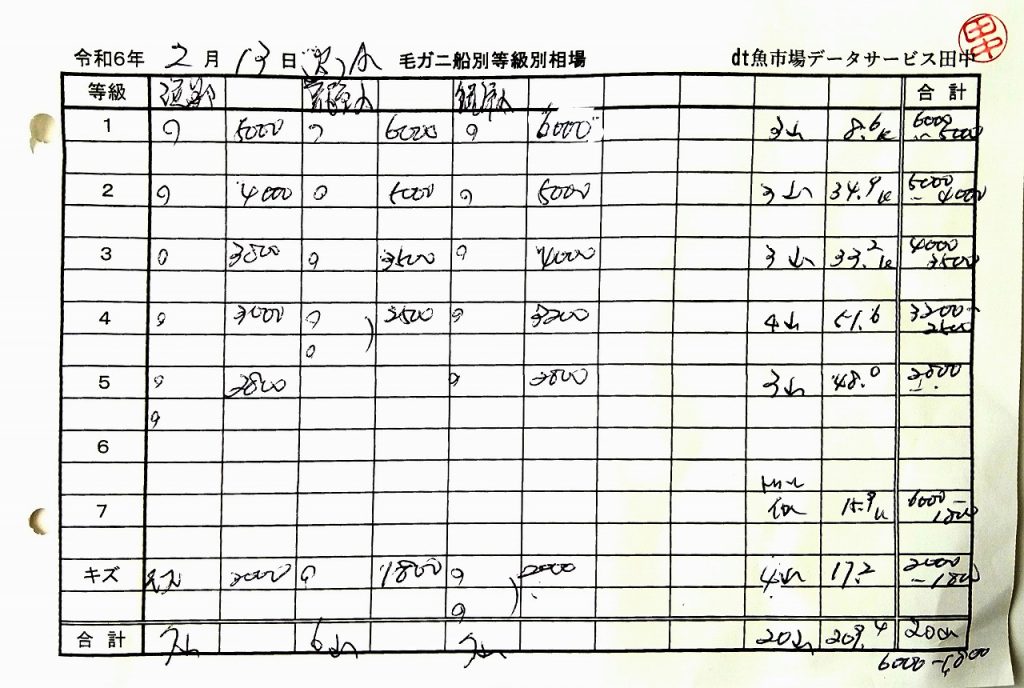 令和6年 2月 13日 毛ガニ船別等級別相場 dt魚市場データサービス田中
田中
等級 合計
1 5000 6000 6000 3山 8.6K 6000〜5000
2 4000 5000 5000 3山 34.9K 5000〜4000
3 3800 3500 4000 3山 33.2K 4000 3500
4 3000 2500 3200 4山 51.6 3200〜2500
5 2800 2800 3山 48.0 2800
6
7 15.9K 6000〜1800
キズ キズ 2000 1800 2000 4山 17.2 2000〜1800
合計 7山 6山 7山 20山 209.4 20山
6000〜1800